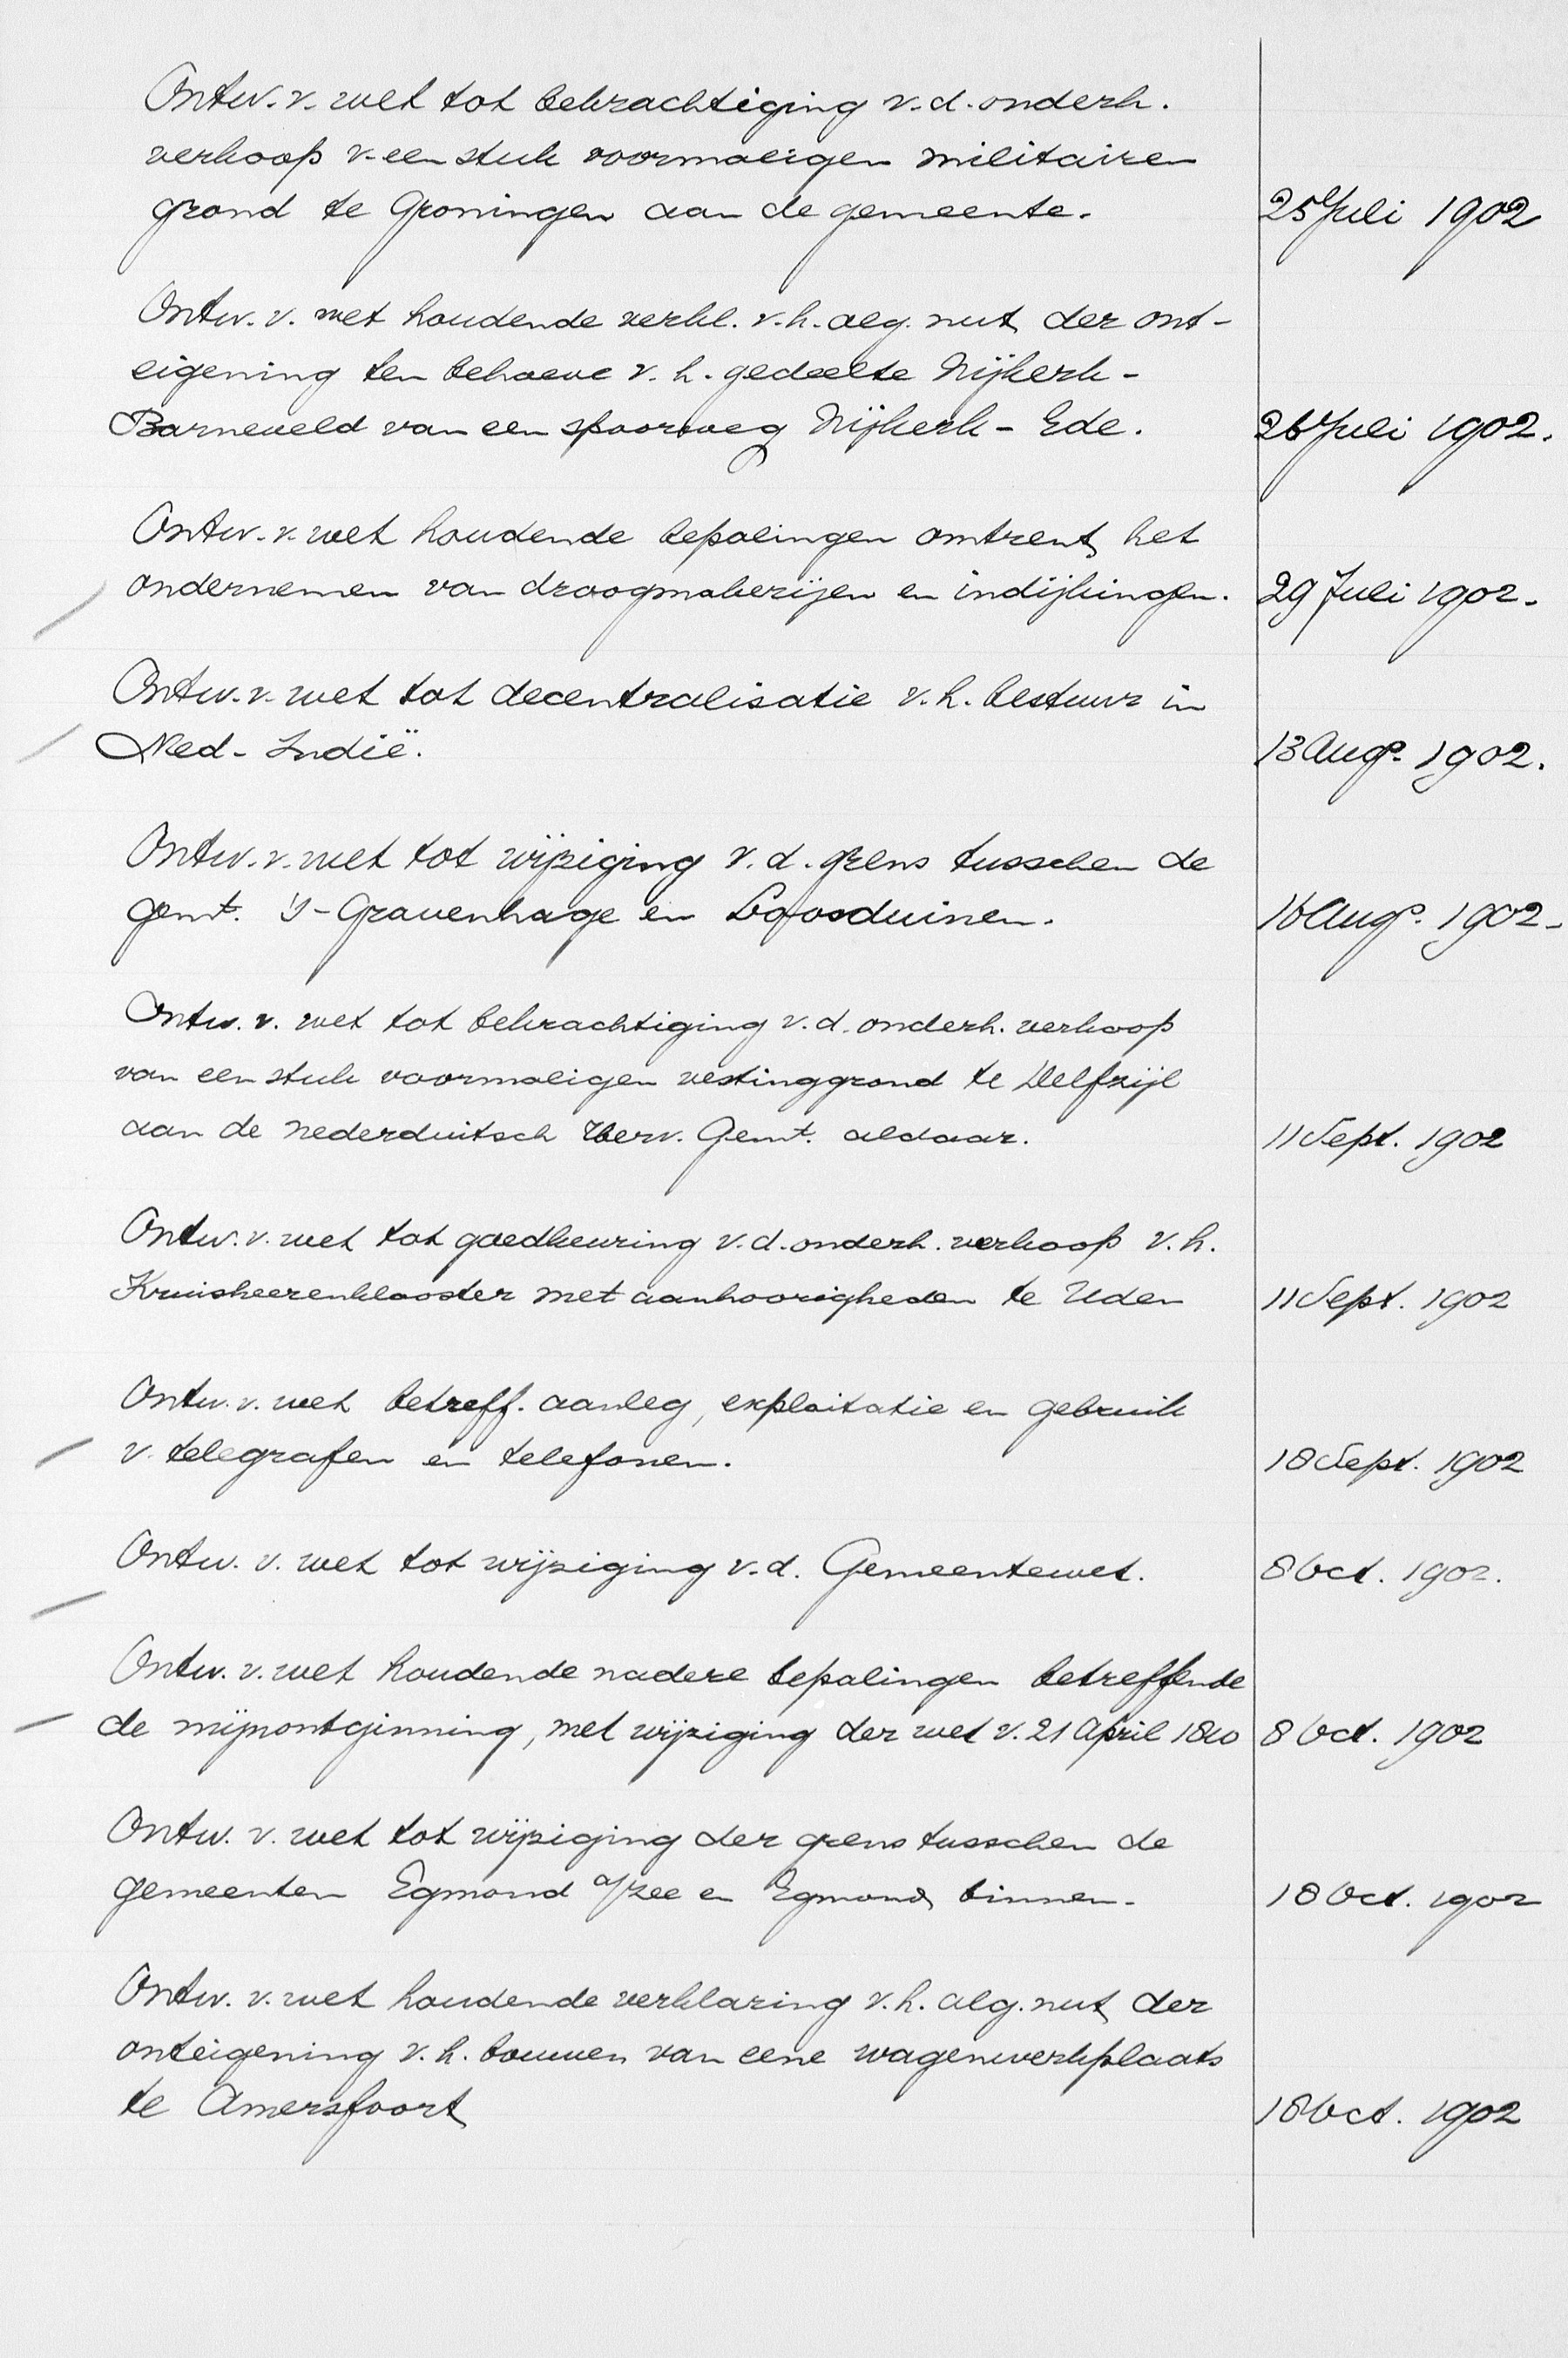 Ontw. v. wet tot bekrachtiging v. d. onderh.
verkoop v. een stuk voormaligen militairen
grond te Groningen aan de gemeente. 25 Juli 1902
Ontw. v. wet houdende verkl. v. h. alg. nut der ont-
eigening ten behoeve v. h. gedeelte Nijkerk-
Barneveld van een spoorweg Nijkerk - Ede. 26 Juli 1902.
Ontw. v. wet houdende bepalingen omtrent het
ondernemen van droogmakerijen en indijkingen. 29 Juli 1902.
Ontw. v. wet tot decentralisatie v. h. bestuur in
Ned- Indië. 13 Augs. 1902.
Ontw. v. wet tot wijziging v. d. grens tusschen de
gemt. 's-Gravenhage en Loosduinen. 16 Augs. 1902.
Ontw. v. wet tot bekrachtiging v. d. onderh. verkoop
van een stuk voormaligen vestinggrond te Delfzijl
aan de nederduitsch Herv. Gemt. aldaar. 11 Sept. 1902
Ontw. v. wet tot goedkeuring v. d. onderh. verkoop v. h.
Kruisheerenklooster met aanhoorigheden te Uden 11 Sept. 1902
Ontw. v. wet betreff. aanleg, exploitatie en gebruik
v. telegrafen en telefonen. 18 Sept. 1902
Ontw. v. wet tot wijziging v. d. Gemeentewet. 8 Oct. 1902.
Ontw. v. wet houdende nadere bepalingen betreffende
de mijnontginning, met wijziging der wet v. 21 April 1810 8 Oct. 1902
Ontw. v. wet tot wijziging der grens tusschen de
gemeenten Egmond a/zee en Egmond binnen. 18 Oct. 1902
Ontw. v. wet houdende verklaring v. h. alg. nut der
onteigening v. h. bouwen van eene wagenwerkplaats
te Amersfoort 18 Oct. 1902